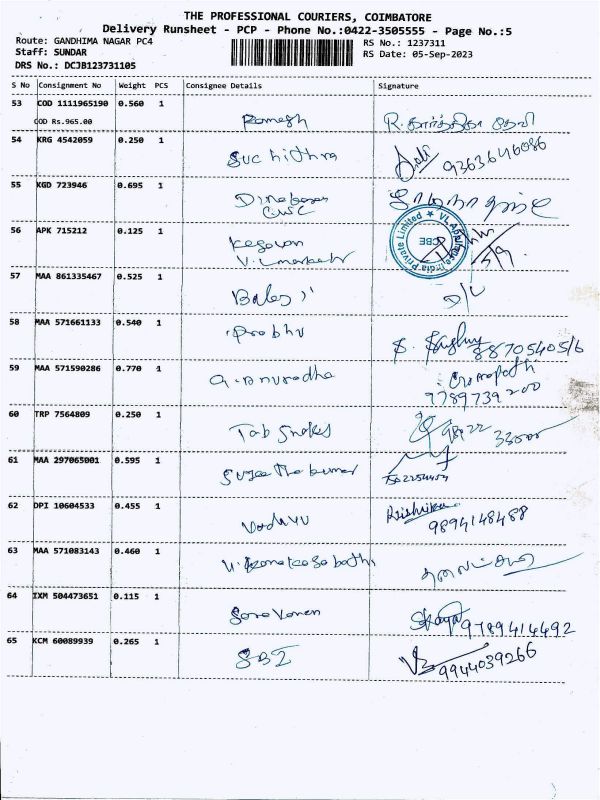 THE PROFESSIONAL COURIERS, COIMBATORE
Delivery Runsheet - PCP - Phone No.:0422-3505555 - Page No.:5
Route: GANDHIMA NAGAR PC4
RS No.: 1237311
Staff: SUNDAR
RS Date: 05-Sep-2023
DRS No.: DCJB123731105
S No Consignment No Weight PCS Consignee Details Signature
53 COD 1111965190 0.560 1
COD Rs.965.00 Ramesh R.
54 KRG 4542059 0.250 1
Suchithra 9363646086
55 KGD 723946 0.695 1
CWC
56 APK 715212 0.125 1
Kesavan 5/9
57 MAA 861335467 0.525 1
Balaji D/L
58 MAA 571661133 0.540 1
Prabhu S. 8870540516
59 MAA 571590286 0.770 1
G. Anuradha 9789739200
60 TRP 7564809 0.250 1
Tab Snakes 98422 33000
61 MAA 297065001 0.595 1
62 DPI 10604533 0.455 1
Krishika
9894148488
63 MAA 571083143 0.460 1
64 IXM 504473651 0.115 1
Saravanan 9789414492
65 KCM 60089939 0.265 1
SBI 9944039266